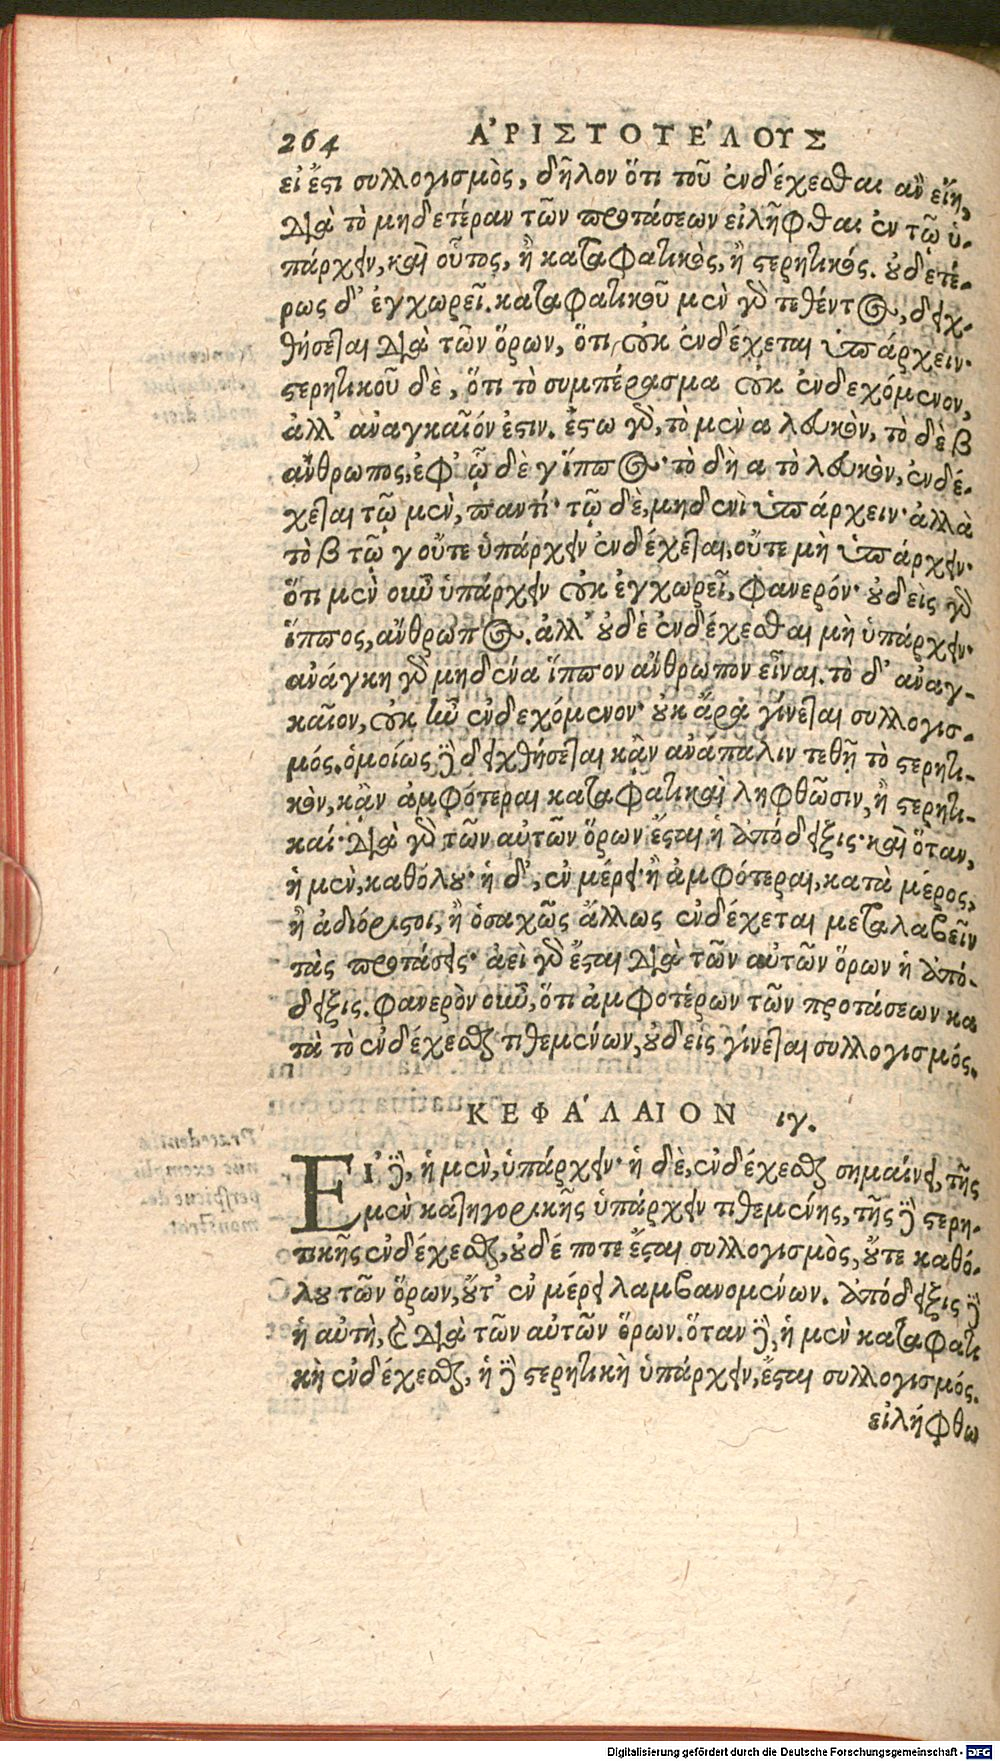 264 ἈΡΙΣΤΟΤΈΛΟΥΣ
εἰ ἔστι συλλογισμὸς, δῆλον ὅτι τοῦ ἐνδέχεσθαι ἂν εἴη,
διὰ τὸ μηδετέραν τῶν προτάσεων εἰλῆφθαι ἐν τῷ ὑ-
πάρχειν, καὶ οὗτος, ἢ καταφατικὸς, ἢ στερητικός. οὐδετέ-
ρως δ’ ἐγχωρεῖ. καταφατικοῦ μὲν γὰρ τεθέντος, δειχ-
θήσεται διὰ τῶν ὅρων, ὅτι οὐκ ἐνδέχεται ὑπάρχειν·
στερητικοῦ δὲ, ὅτι τὸ συμπέρασμα οὐκ ἐνδεχόμενον,
ἀλλ’ ἀναγκαῖόν ἐστιν. ἔστω γὰρ, τὸ μὲν α λευκὸν, τὸ δὲ β
ἄνθρωπος, ἐφ’ ᾧ δὲ γ ἵππος· τὸ δὴ α τὸ λευκὸν, ἐνδέ-
χεται τῷ μὲν, παντί· τῷ δὲ, μηδενὶ ὑπάρχειν· ἀλλὰ
τὸ β τῷ γ οὔτε ὑπάρχειν ἐνδέχεται, οὔτε μὴ ὑπάρχειν·
ὅτι μὲν οὖν ὑπάρχειν οὐκ ἐγχωρεῖ, φανερόν· οὐδεὶς γὰρ
ἵππος, ἄνθρωπος. ἀλλ’ οὐδὲ ἐνδέχεσθαι μὴ ὑπάρχειν·
ἀνάγκη γὰρ μηδένα ἵππον ἄνθρωπον εἶναι. τὸ δ’ ἀναγ-
καῖον, οὐκ ἦν ἐνδεχόμενον· οὐκ ἄρα γίνεται συλλογισ-
μός. ὁμοίως δὲ δειχθήσεται κἂν ἀνάπαλιν τεθῇ τὸ στερητι-
κὸν, κἂν ἀμφότεραι καταφατικαὶ ληφθῶσιν, ἢ στερητι-
καί· διὰ γὰρ τῶν αὐτῶν ὅρων ἔσται ἡ ἀπόδειξις· καὶ ὅταν,
ἡ μὲν, καθόλου· ἡ δ’, ἐν μέρει· ἢ ἀμφότεραι, κατὰ μέρος,
ἢ ἀδιόριστοι, ἢ ὁσαχῶς ἄλλως ἐνδέχεται μεταλαβεῖν
τὰς προτάσεις· ἀεὶ γὰρ ἔσται διὰ τῶν αὐτῶν ὅρων ἡ ἀπό-
δειξις. φανερὸν οὖν, ὅτι ἀμφοτέρων τῶν προτάσεων κα
τὰ τὸ ἐνδέχεσθαι τιθεμένων, οὐδεὶς γίνεται συλλογισμός.
ΚΕΦΆΛΑΙΟΝ ιγ.
Εἰ δὲ, ἡ μὲν, ὑπάρχειν· ἡ δὲ, ἐνδέχεσθαι σημαίνει, τῆς
μὲν κατηγορικῆς ὑπάρχειν τιθεμένης, τῆς δὲ στερη-
τικῆς ἐνδέχεσθαι, οὐδέ ποτε ἔσται συλλογισμὸς, οὔτε καθό-
λου τῶν ὅρων, οὔτ’ ἐν μέρει λαμβανομένων. ἀπόδειξις δὲ
ἡ αὐτὴ, καὶ διὰ τῶν αὐτῶν ὅρων. ὅταν δὲ, ἡ μὲν καταφατι
κὴ ἐνδέχεσθαι, ἡ δὲ στερητικὴ ὑπάρχειν, ἔσται συλλογισμός.
εἰλήφθω
Digitalisierung gefördert durch die Deutsche Forschungsgemeinschaft - DFG